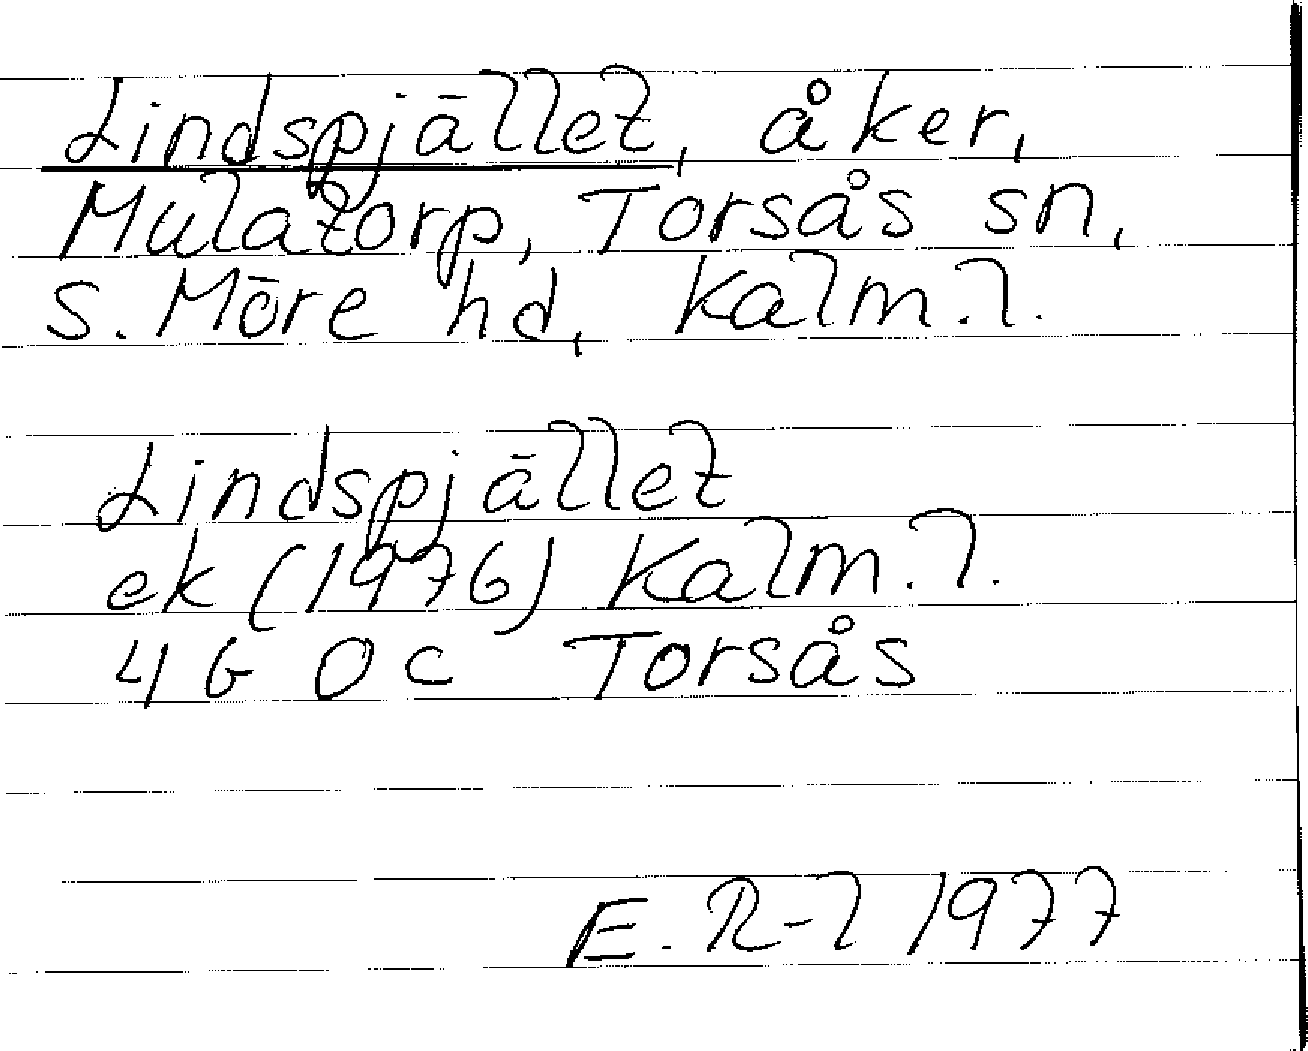 Lindspjället, åker,
Mulatorp, Torsås sn,
S. Möre hd, Kalm. l.
Lindspjället
ek (1976) Kalm. l.
4G 0c Torsås
E. R-l 1977